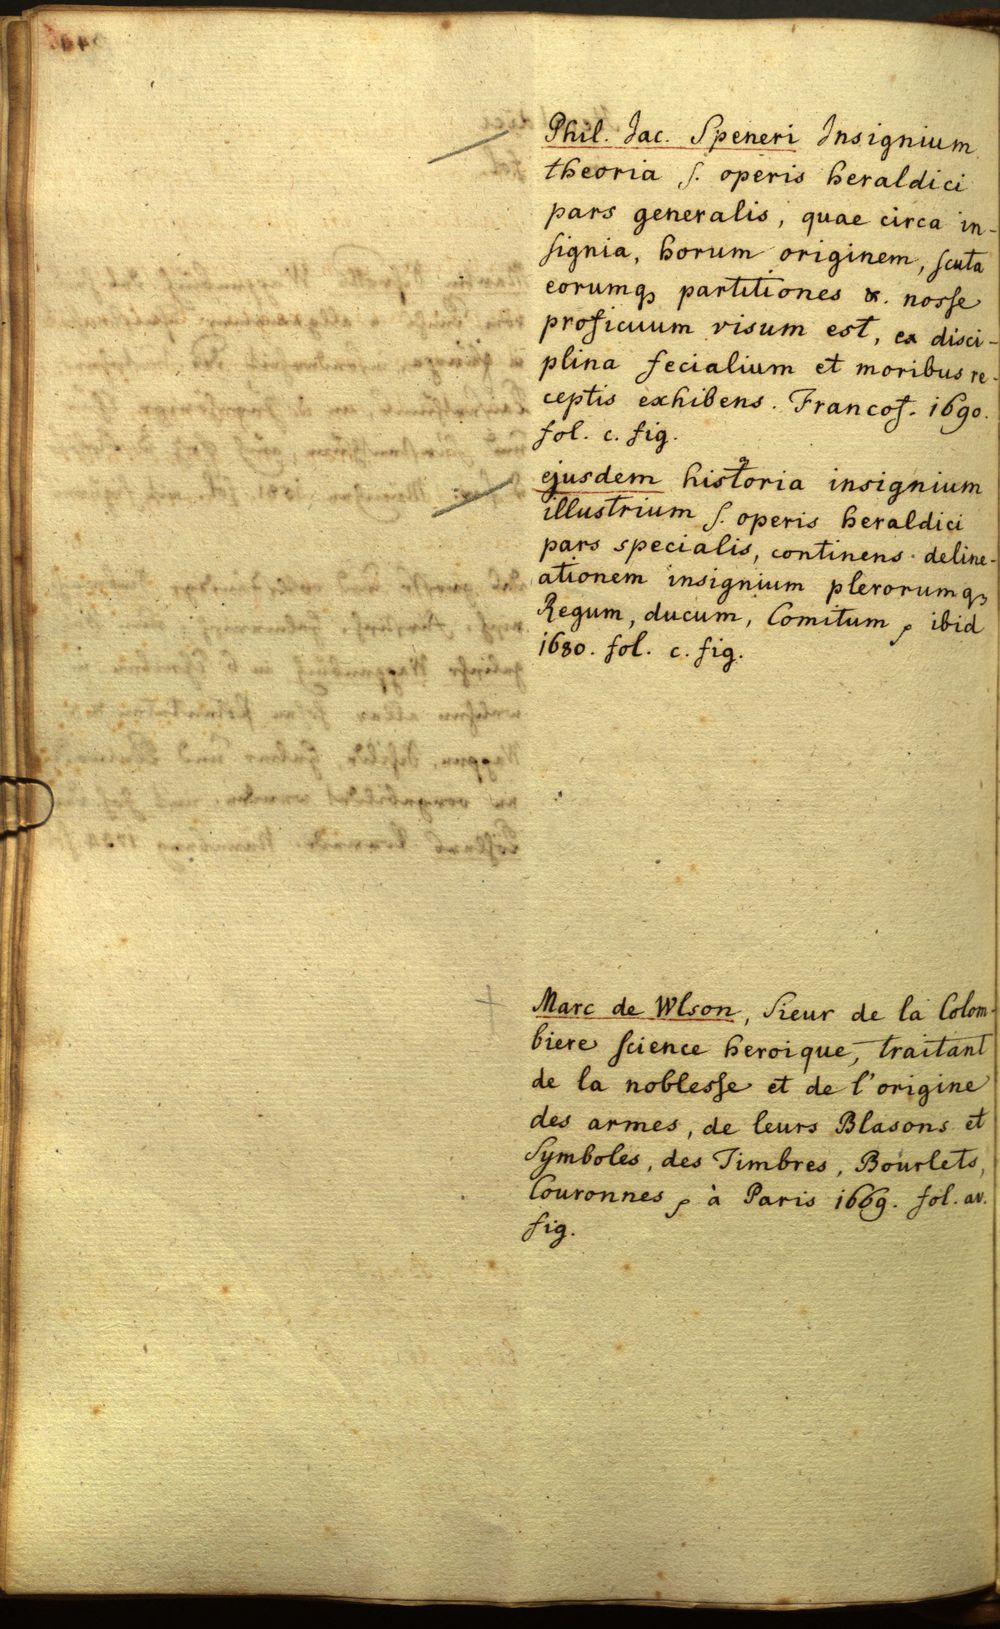 Phil. Jac. Speneri Insignium
theoria s. operis heraldici
pars generalis, quae circa in-
signia, horum originem, scuta
eorumq; partitiones &. nosse
proficuum visum est, ex disci-
plina fecialium et moribus re-
ceptis exhibens. Francof. 1690.
fol. c. fig.
ejusdem historia insignium
illustrium s. operis heraldici
pars specialis, continens deline-
ationem insignium plerorumq;
Regum, ducum, Comitum, ibid
1680. fol. c. fig.
Marc de Wlson, Sieur de la Colom-
biere science heroique, traitant
de la noblesse et de l'origine
des armes, de leurs Blasons et
Symboles, des Timbres, Bourlets,
Couronnes, à Paris 1669. fol. av.
fig.